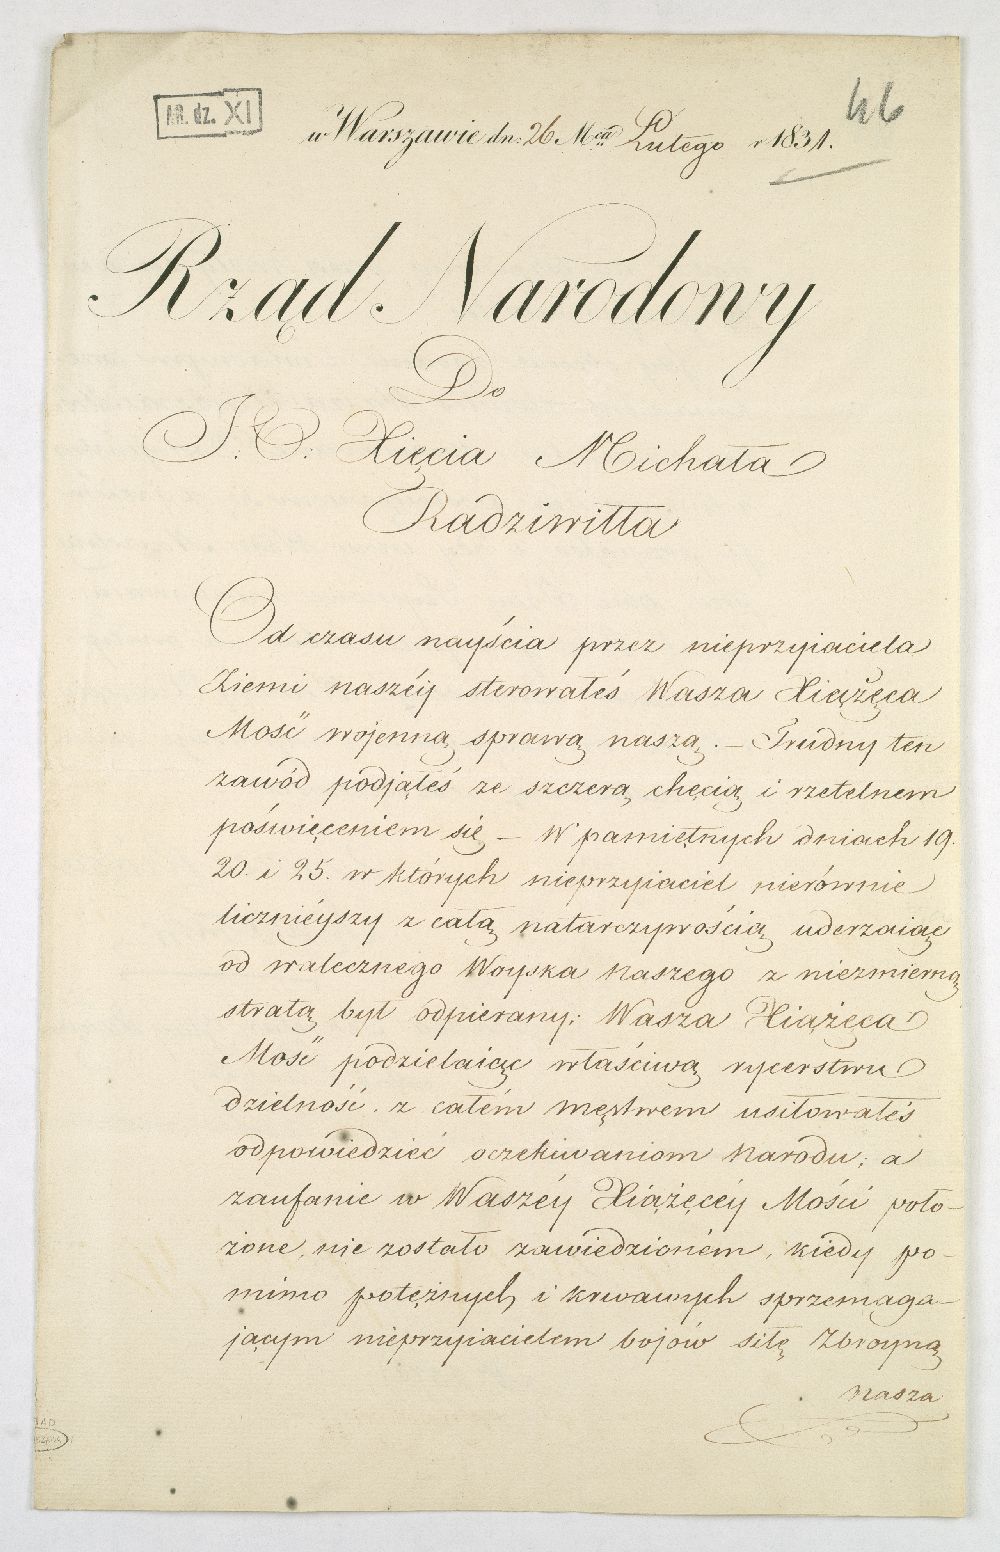 AR. dz. XI
46
w Warszawie dn: 26 Mca Lutego r 1831.
Rząd Narodowy
Do
J. O. Xięcia Michała
Radziwiłła
Od czasu nayścia przez nieprzyiaciela
Ziemi naszéiy sterowałeś Wasza Xiążęca
Mość wojenną sprawą naszą. – Trudny ten
zawód podjąłeś ze szczerą chęcią i rzetelnem
poświęceniem się – W pamiętnych dniach 19.
20. i 25. w których nieprzyiaciel nierównie
licznieyszy z całą natarczywością uderzaiąc
od walecznego Woyska naszego z niezmierną
stratą był odpierany; Wasza Xiążęca
Mość podzielaiąc właściwą rycerstwu
dzielność z całém męstwem usiłowałeś
odpowiedzieć oczekiwaniom Narodu; a
zaufanie w Waszéy Xiążęcéy Mości poło-
żone, nie zostało zawiedzioném, kiedy po-
mimo potężnych i krwawych sprzemaga-
jącym nieprzyiacielem bojów siłę Zbroyną
naszą